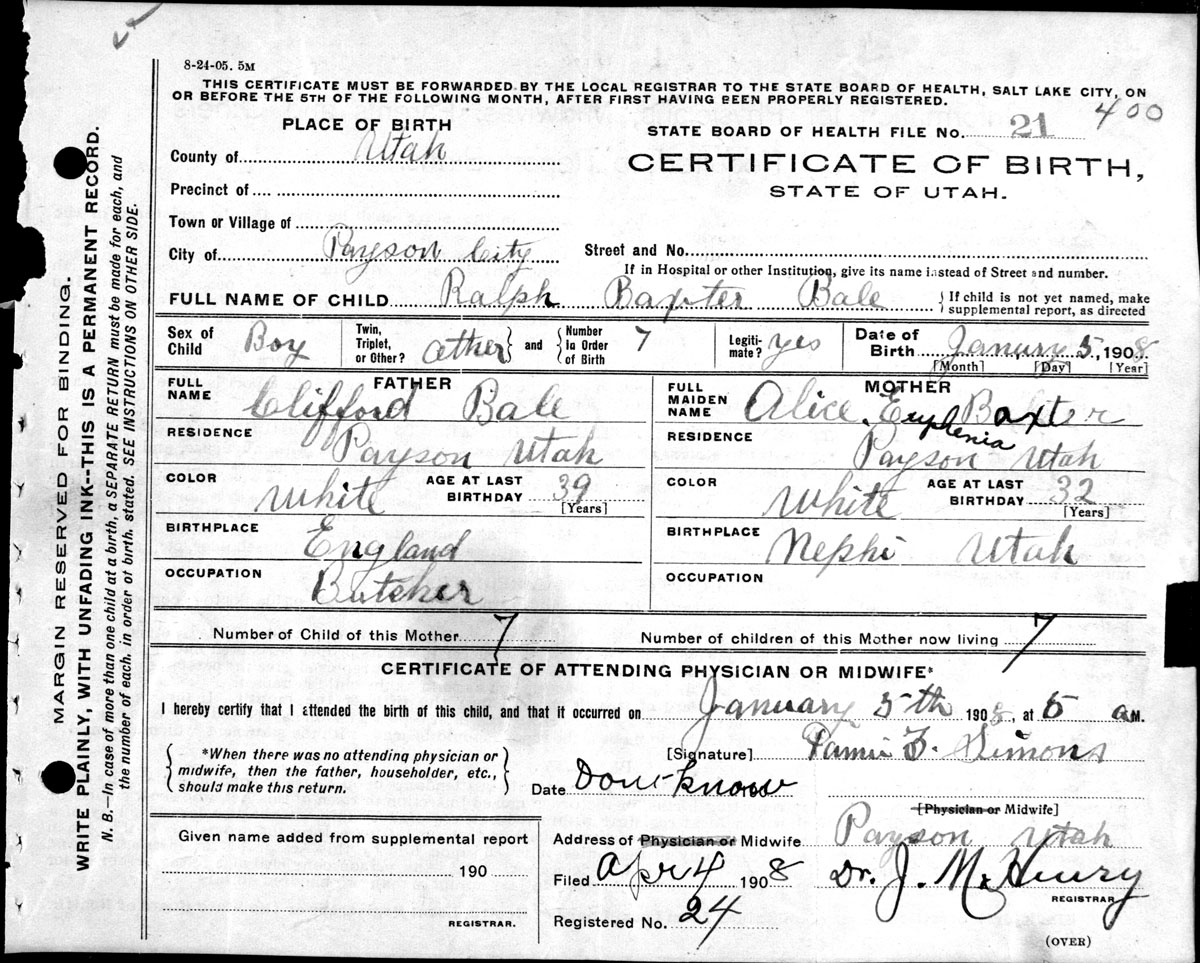 8-24-05. 5M
THIS CERTIFICATE MUST BE FORWARDED BY THE LOCAL REGISTRAR TO THE STATE BOARD OF HEALTH, SALT LAKE CITY, ON
OR BEFORE THE 5TH OF THE FOLLOWING MONTH, AFTER FIRST HAVING BEEN PROPERLY REGISTERED.
400
PLACE OF BIRTH
STATE BOARD OF HEALTH FILE No. 21
County of Utah
CERTIFICATE OF BIRTH,
STATE OF UTAH.
Precinct of
Town or Village of
City of Payson City
Street and No.
If in Hospital or other Institution, give its name instead of Street and number.
FULL NAME OF CHILD Ralph Baxter Bale
{ If child is not yet named, make
supplemental report, as directed
Sex of Child Boy
Twin, Triplet, or Other? other } and { Number in Order of Birth 7
Legitimate? yes
Date of Birth Janury 5, 1908
[Month] [Day] [Year]
FATHER
FULL NAME Clifford Bale
RESIDENCE Payson Utah
COLOR White
AGE AT LAST BIRTHDAY 39
[Years]
BIRTHPLACE England
OCCUPATION Butcher
MOTHER
FULL MAIDEN NAME Alice Euphenia Baxter
RESIDENCE Payson Utah
COLOR White
AGE AT LAST BIRTHDAY 32
[Years]
BIRTHPLACE Nephi Utah
OCCUPATION
Number of Child of this Mother 7 Number of children of this Mother now living 7
CERTIFICATE OF ATTENDING PHYSICIAN OR MIDWIFE*
I hereby certify that I attended the birth of this child, and that it occurred on January 5th 1908, at 5 a M.
{ *When there was no attending physician or
midwife, then the father, householder, etc.,
should make this return. }
[Signature] F. Simons
Date Dont know
[Physician or Midwife]
Address of Physician or Midwife Payson Utah
Filed Apr 4 1908 Dr. J. M. Henry
REGISTRAR
Registered No. 24
(OVER)
Given name added from supplemental report
190
REGISTRAR.
MARGIN RESERVED FOR BINDING.
WRITE PLAINLY, WITH UNFADING INK--THIS IS A PERMANENT RECORD.
N. B.—In case of more than one child at a birth, a SEPARATE RETURN must be made for each, and
the number of each, in order of birth, stated. SEE INSTRUCTIONS ON OTHER SIDE.